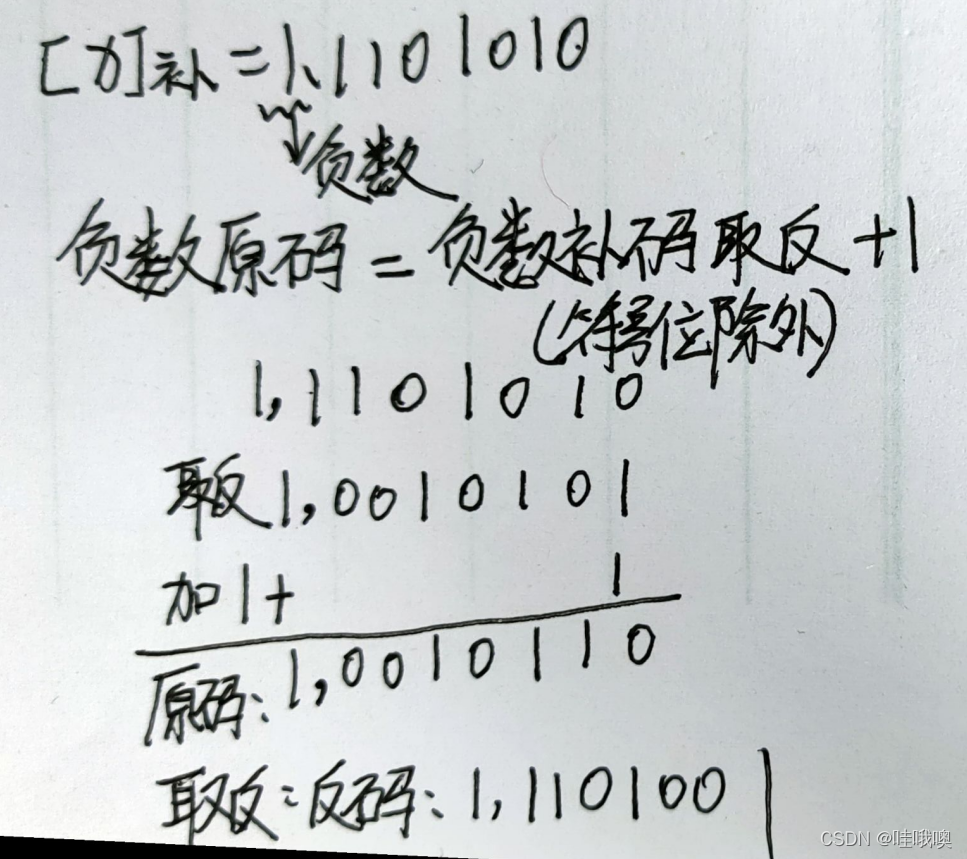 [x]补=1,1101010
负数
负数原码 = 负数补码取反+1
(符号位除外)
1,1101010
取反1,0010101
加1+ 1
原码:1,0010110
取反:反码:1,1101001
CSDN @哇哦噢